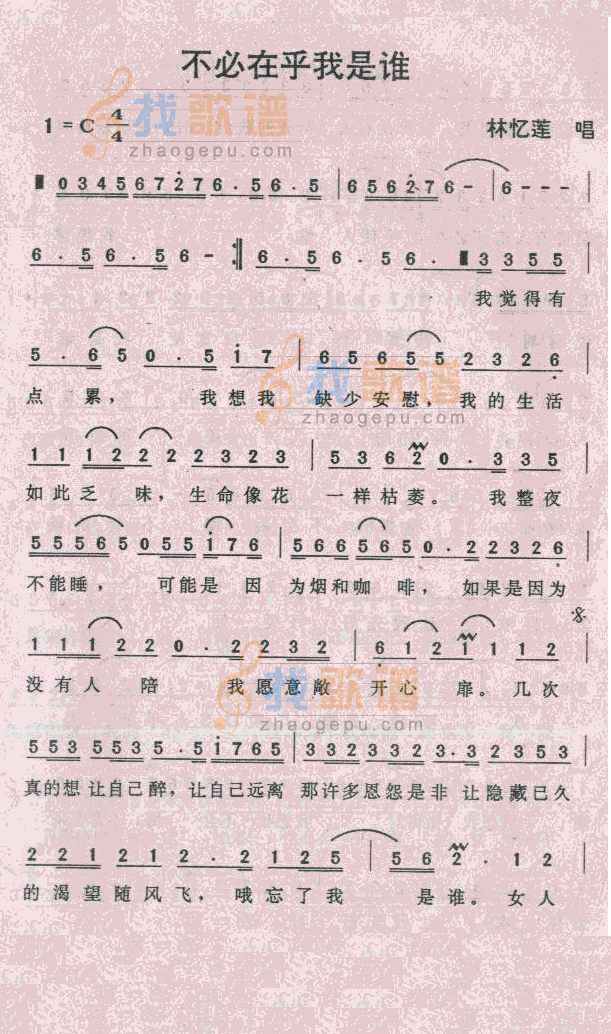 不必在乎我是谁
1=C 4/4 林忆莲 唱
找歌谱
zhaogepu.com
0 3 4 5 6 7 2 7 6 · 5 6 · 5 | 6 5 6 2 7 6 - | 6 - - - |
6 · 5 6 · 5 6 - :|| 6 · 5 6 · 5 6 · 3 3 5 5
我觉得有
5 · 6 5 0 · 5 i 7 | 6 5 6 5 5 2 3 2 6 |
点 累， 我想我 缺少安慰，我的生活
找歌谱
zhaogepu.com
1 1 1 2 2 2 2 3 2 3 | 5 3 6 2 0 · 3 3 5
如此乏 味，生命像花 一样枯萎。 我整夜
5 5 5 6 5 0 5 5 i 7 6 | 5 6 6 5 6 5 0 · 2 2 3 2 6 |
不能睡， 可能是 因 为烟和咖 啡， 如果是因为
1 1 1 2 2 0 · 2 2 3 2 | 6 1 2 i 1 1 2
没有人 陪 我愿意敞 开心 扉。几次
找歌谱
zhaogepu.com
5 5 3 5 5 3 5 · 5 i 7 6 5 | 3 3 2 3 3 2 3 · 3 2 3 5 3
真的想让自己醉，让自己远离 那许多恩怨是非 让隐藏已久
2 2 1 2 1 2 · 2 1 2 5 | 5 6 2 · 1 2 |
的渴望随风飞，哦忘了我 是谁。女人